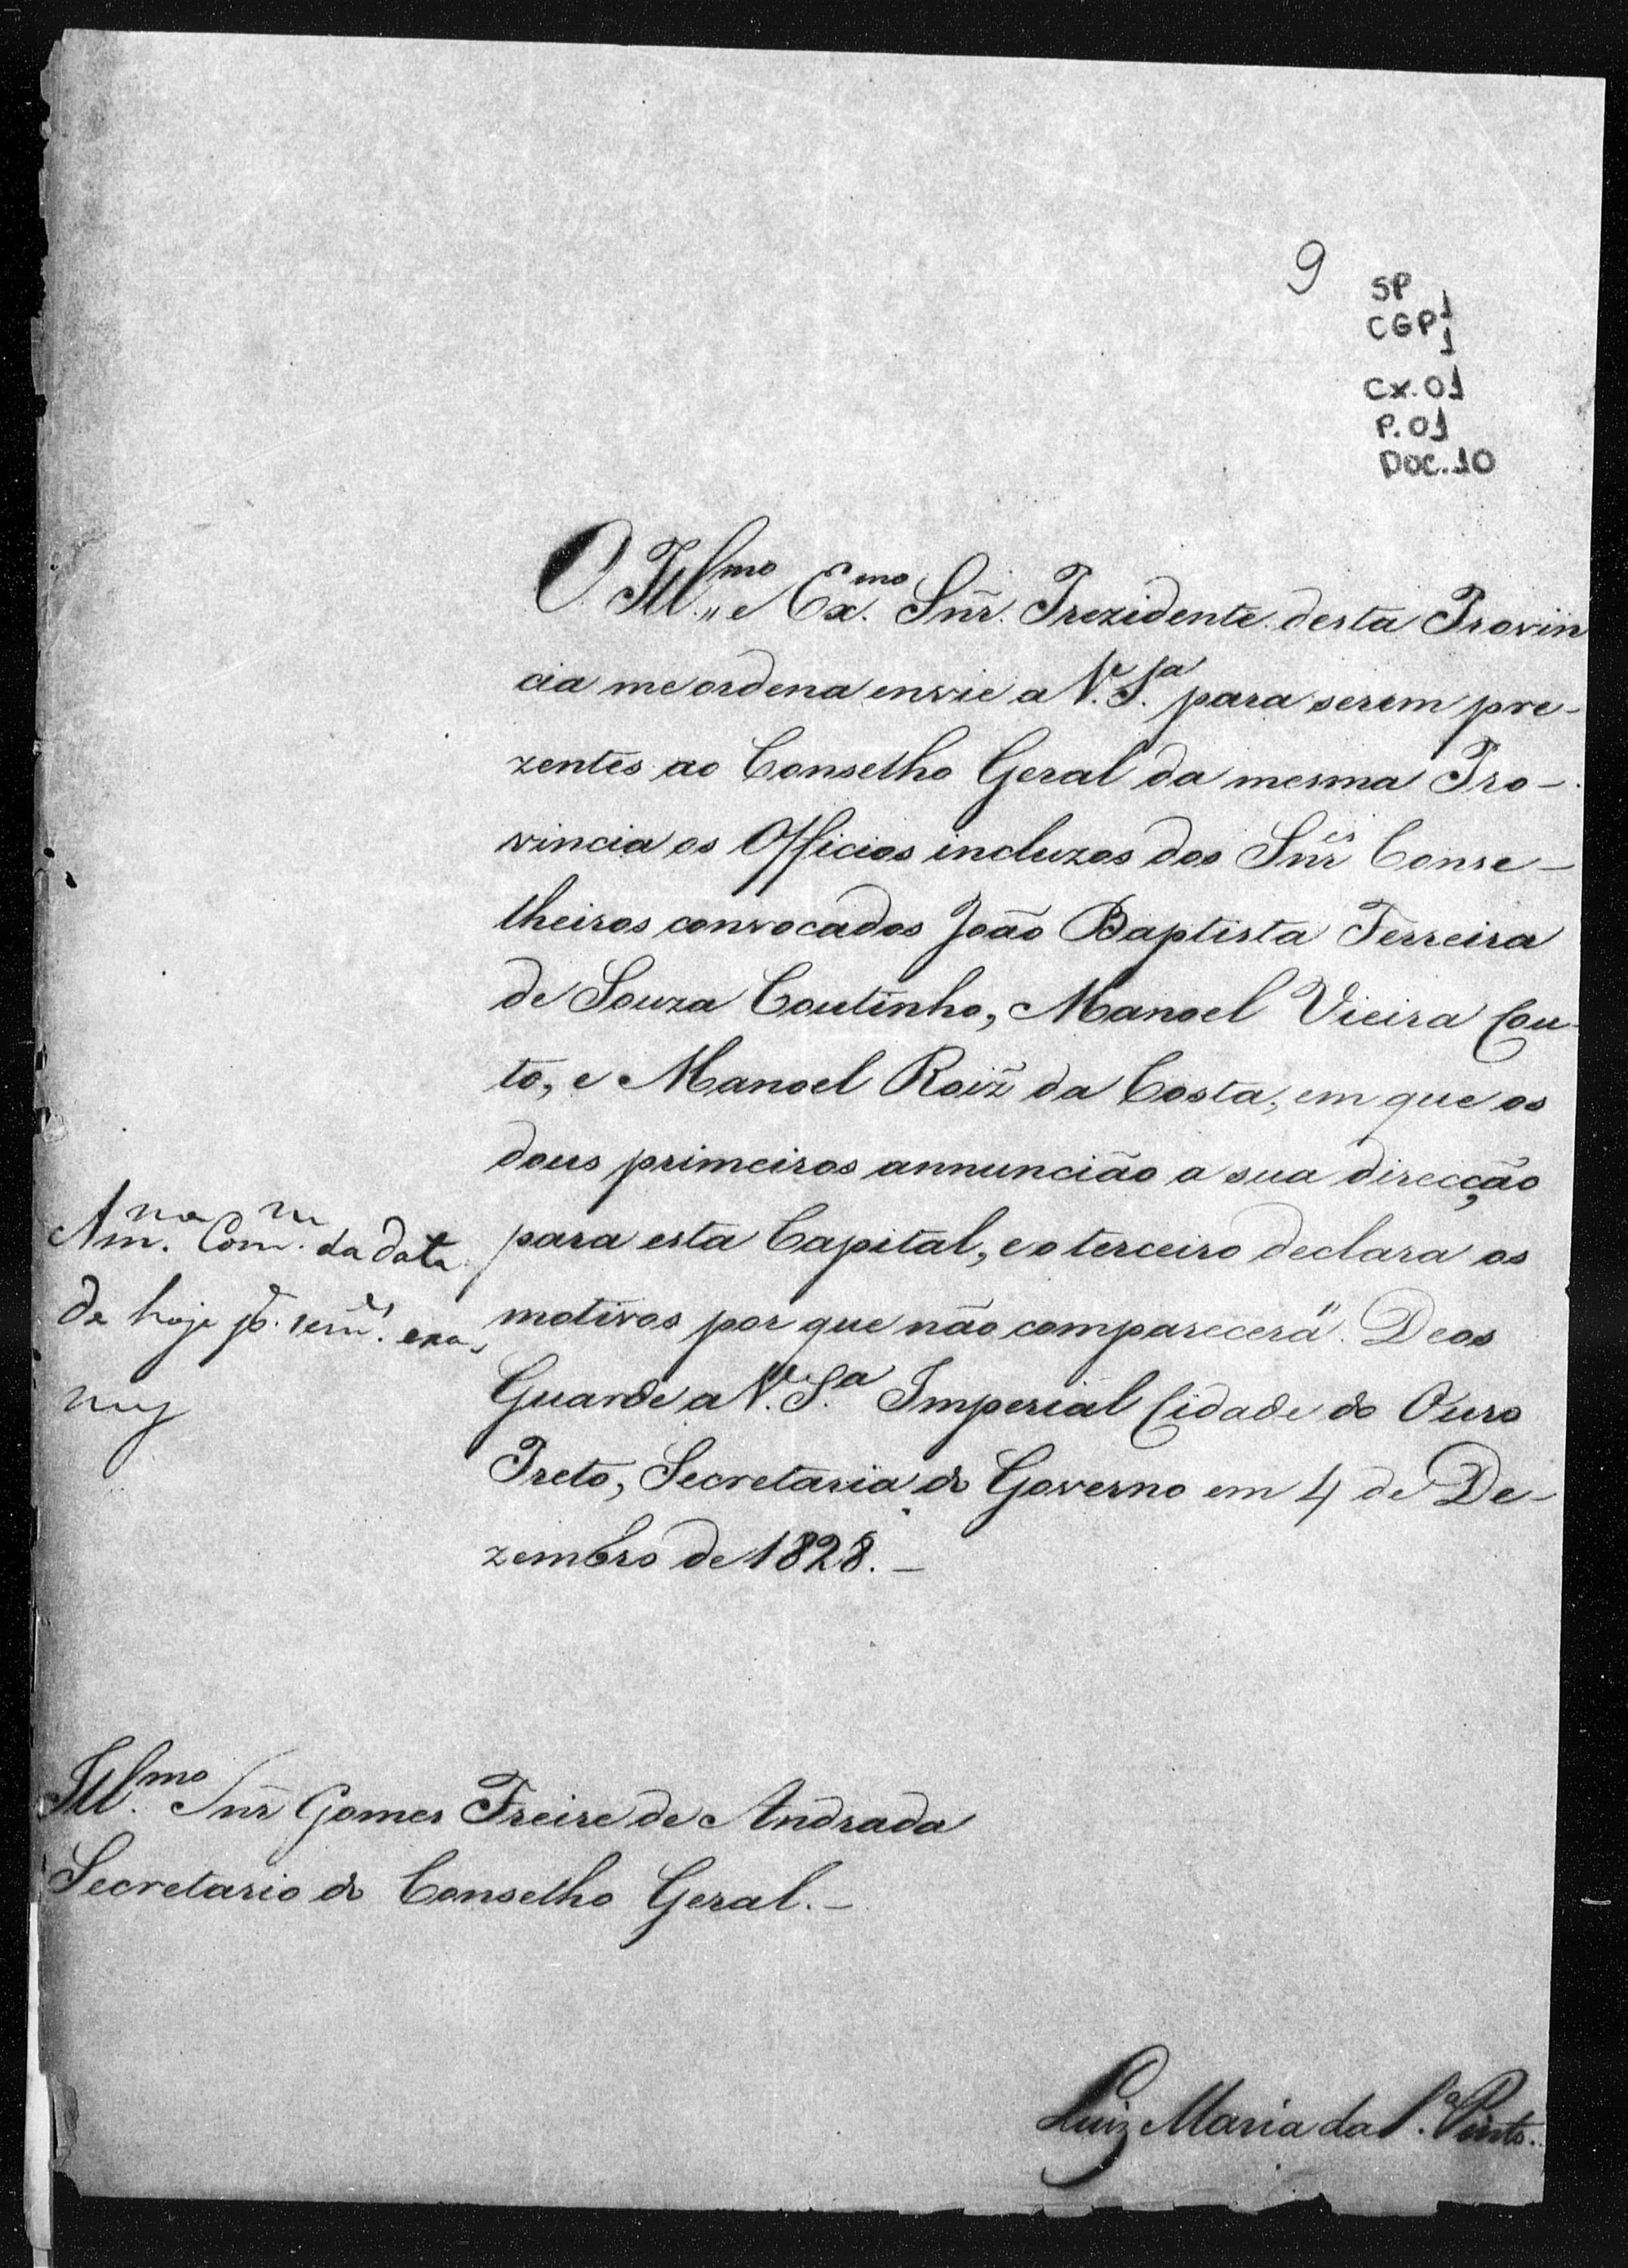 9
SP
CGP 1
1
Cx. 01
P. 01
Doc. 10
O Ill.mo e Ex.mo Snr. Prezidente desta Provin
cia me ordena envie a V. S.a para serem pre-
zentes ao Conselho Geral da mesma Pro-
vincia os Officios incluzos dos Snr.es Conse-
lheiros convocados João Baptista Ferreira
de Souza Coutinho, Manoel Vieira Cou-
to, e Manoel Roiz̃ da Costa, em que os
dous primeiros annuncião a sua direcção
para esta Capital, e o terceiro declara os
motivos por que não comparecerá. Deos
Guarde a V. S.a Imperial Cidade do Ouro
Preto, Secretaria do Governo em 4 de De-
zembro de 1828. -
Com. da data
de hoje
Ill.mo Snr Gomes Freire de Andrada
Secretario do Conselho Geral. -
Luiz Maria da S.a Pinto.